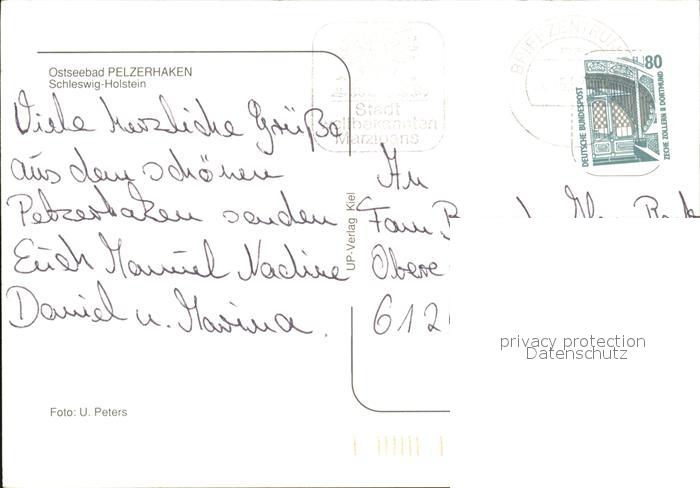 Ostseebad PELZERHAKEN
Schleswig-Holstein
Viele herzliche Grüße
aus dem schönen
Pelzerhaken senden
Euch Manuel Nadine
Daniel u. Marina.
Foto: U. Peters
UP-Verlag Kiel
Stadt
weltbekannten
Marzipans
BRIEFZENTRUM
80
DEUTSCHE BUNDESPOST
ZECHE ZOLLERN II DORTMUND
An
Fam.
Obere
612
privacy protection
Datenschutz